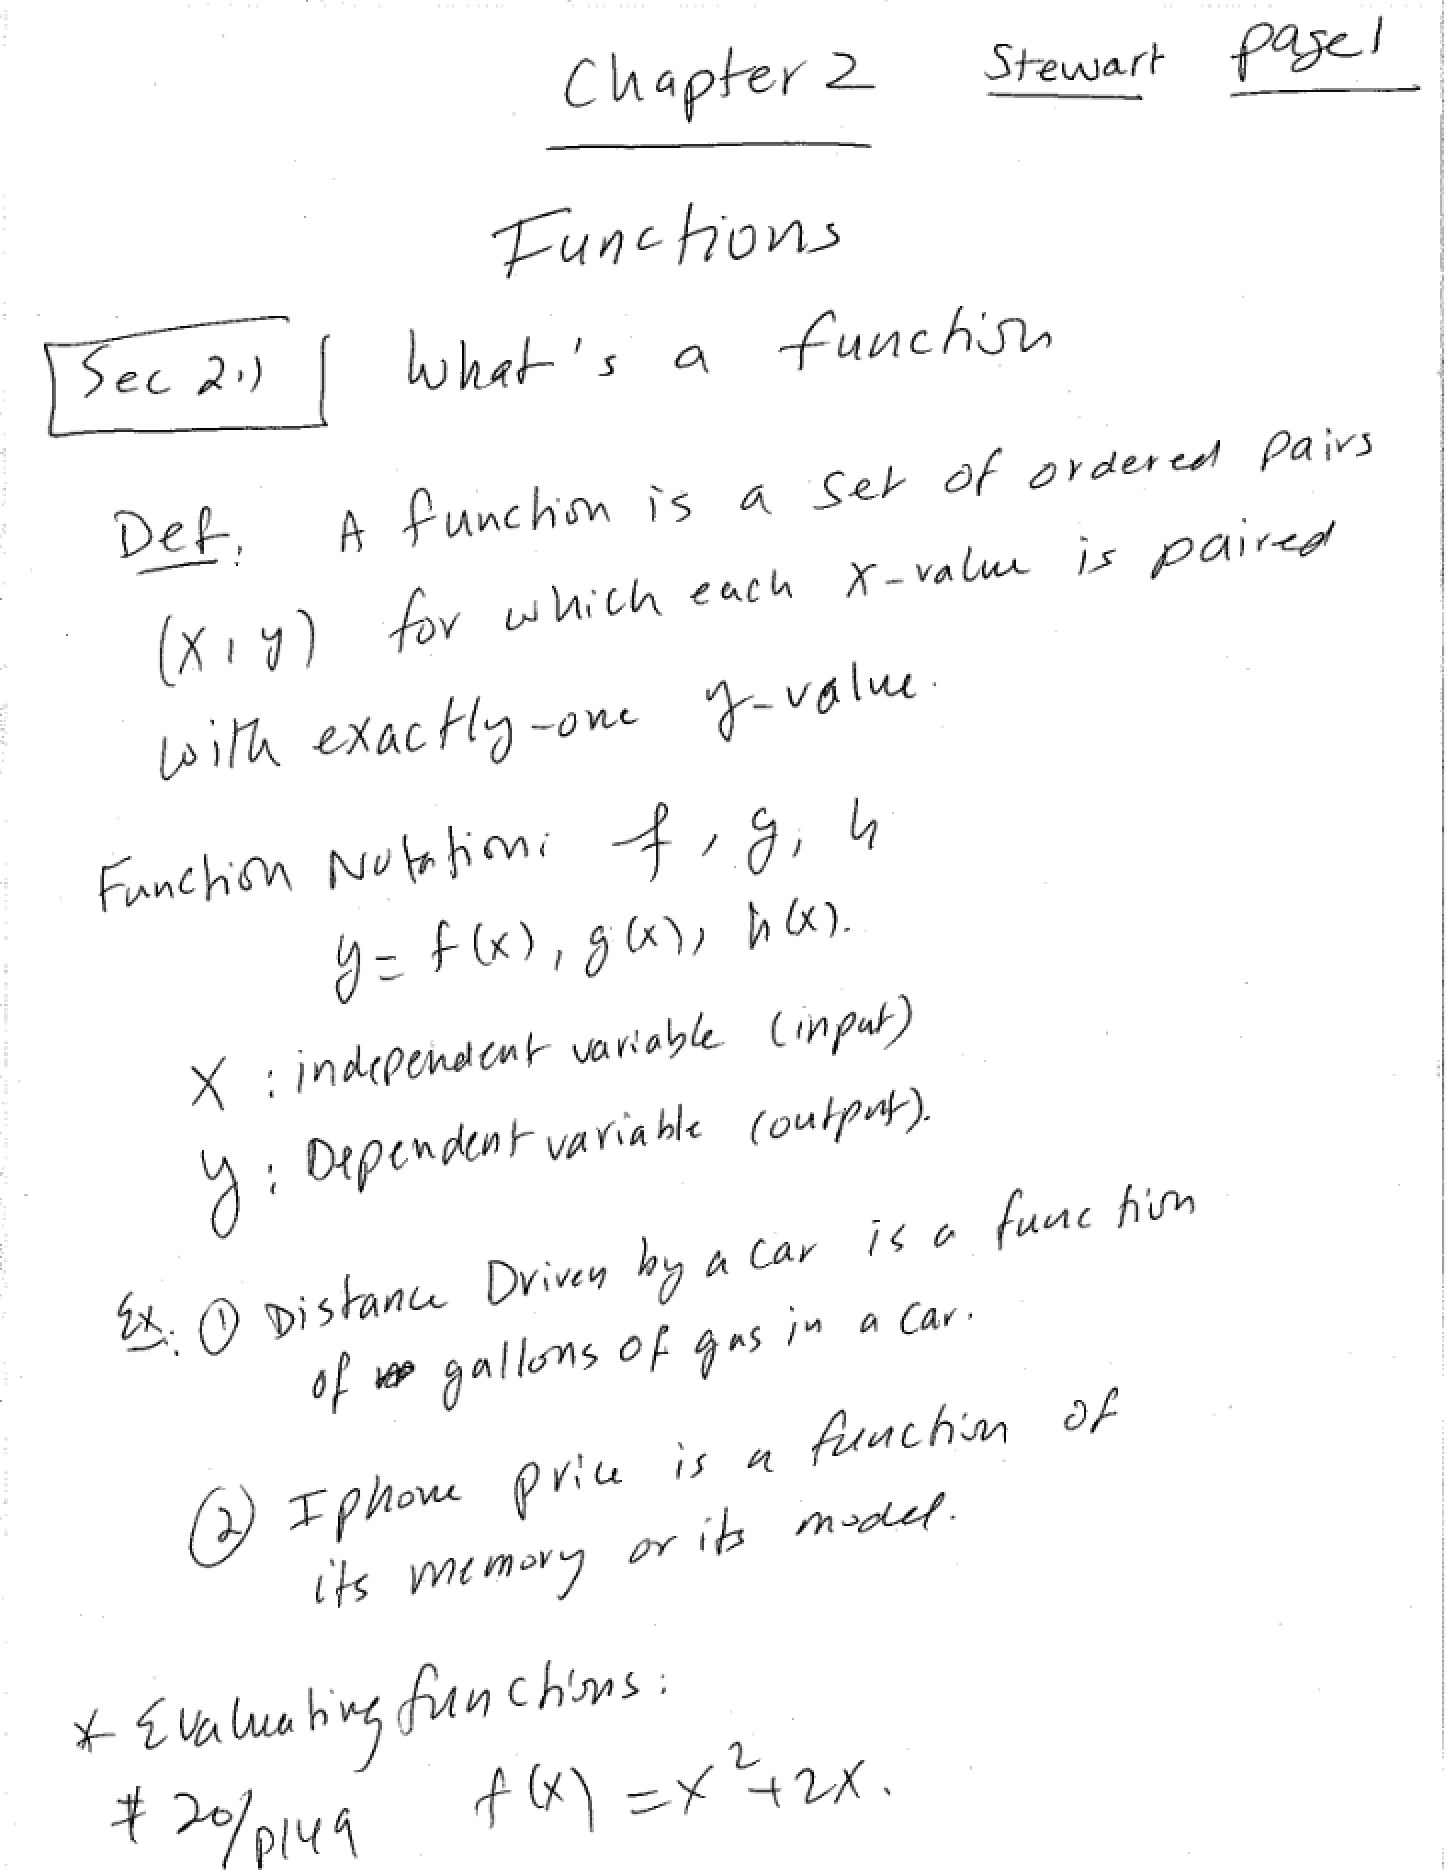 Chapter 2 Stewart page 1
Functions
Sec 2.1 What's a function
Def. A function is a set of ordered pairs
(x, y) for which each x-value is paired
with exactly-one y-value.
Function Notation: f, g, h
y = f(x), g(x), h(x).
x : independent variable (input)
y : Dependent variable (output).
Ex: ① Distance Driven by a car is a function
of gallons of gas in a car.
② Iphone price is a function of
its memory or its model.
* Evaluating functions:
# 20/p149 f(x) = x² + 2x.